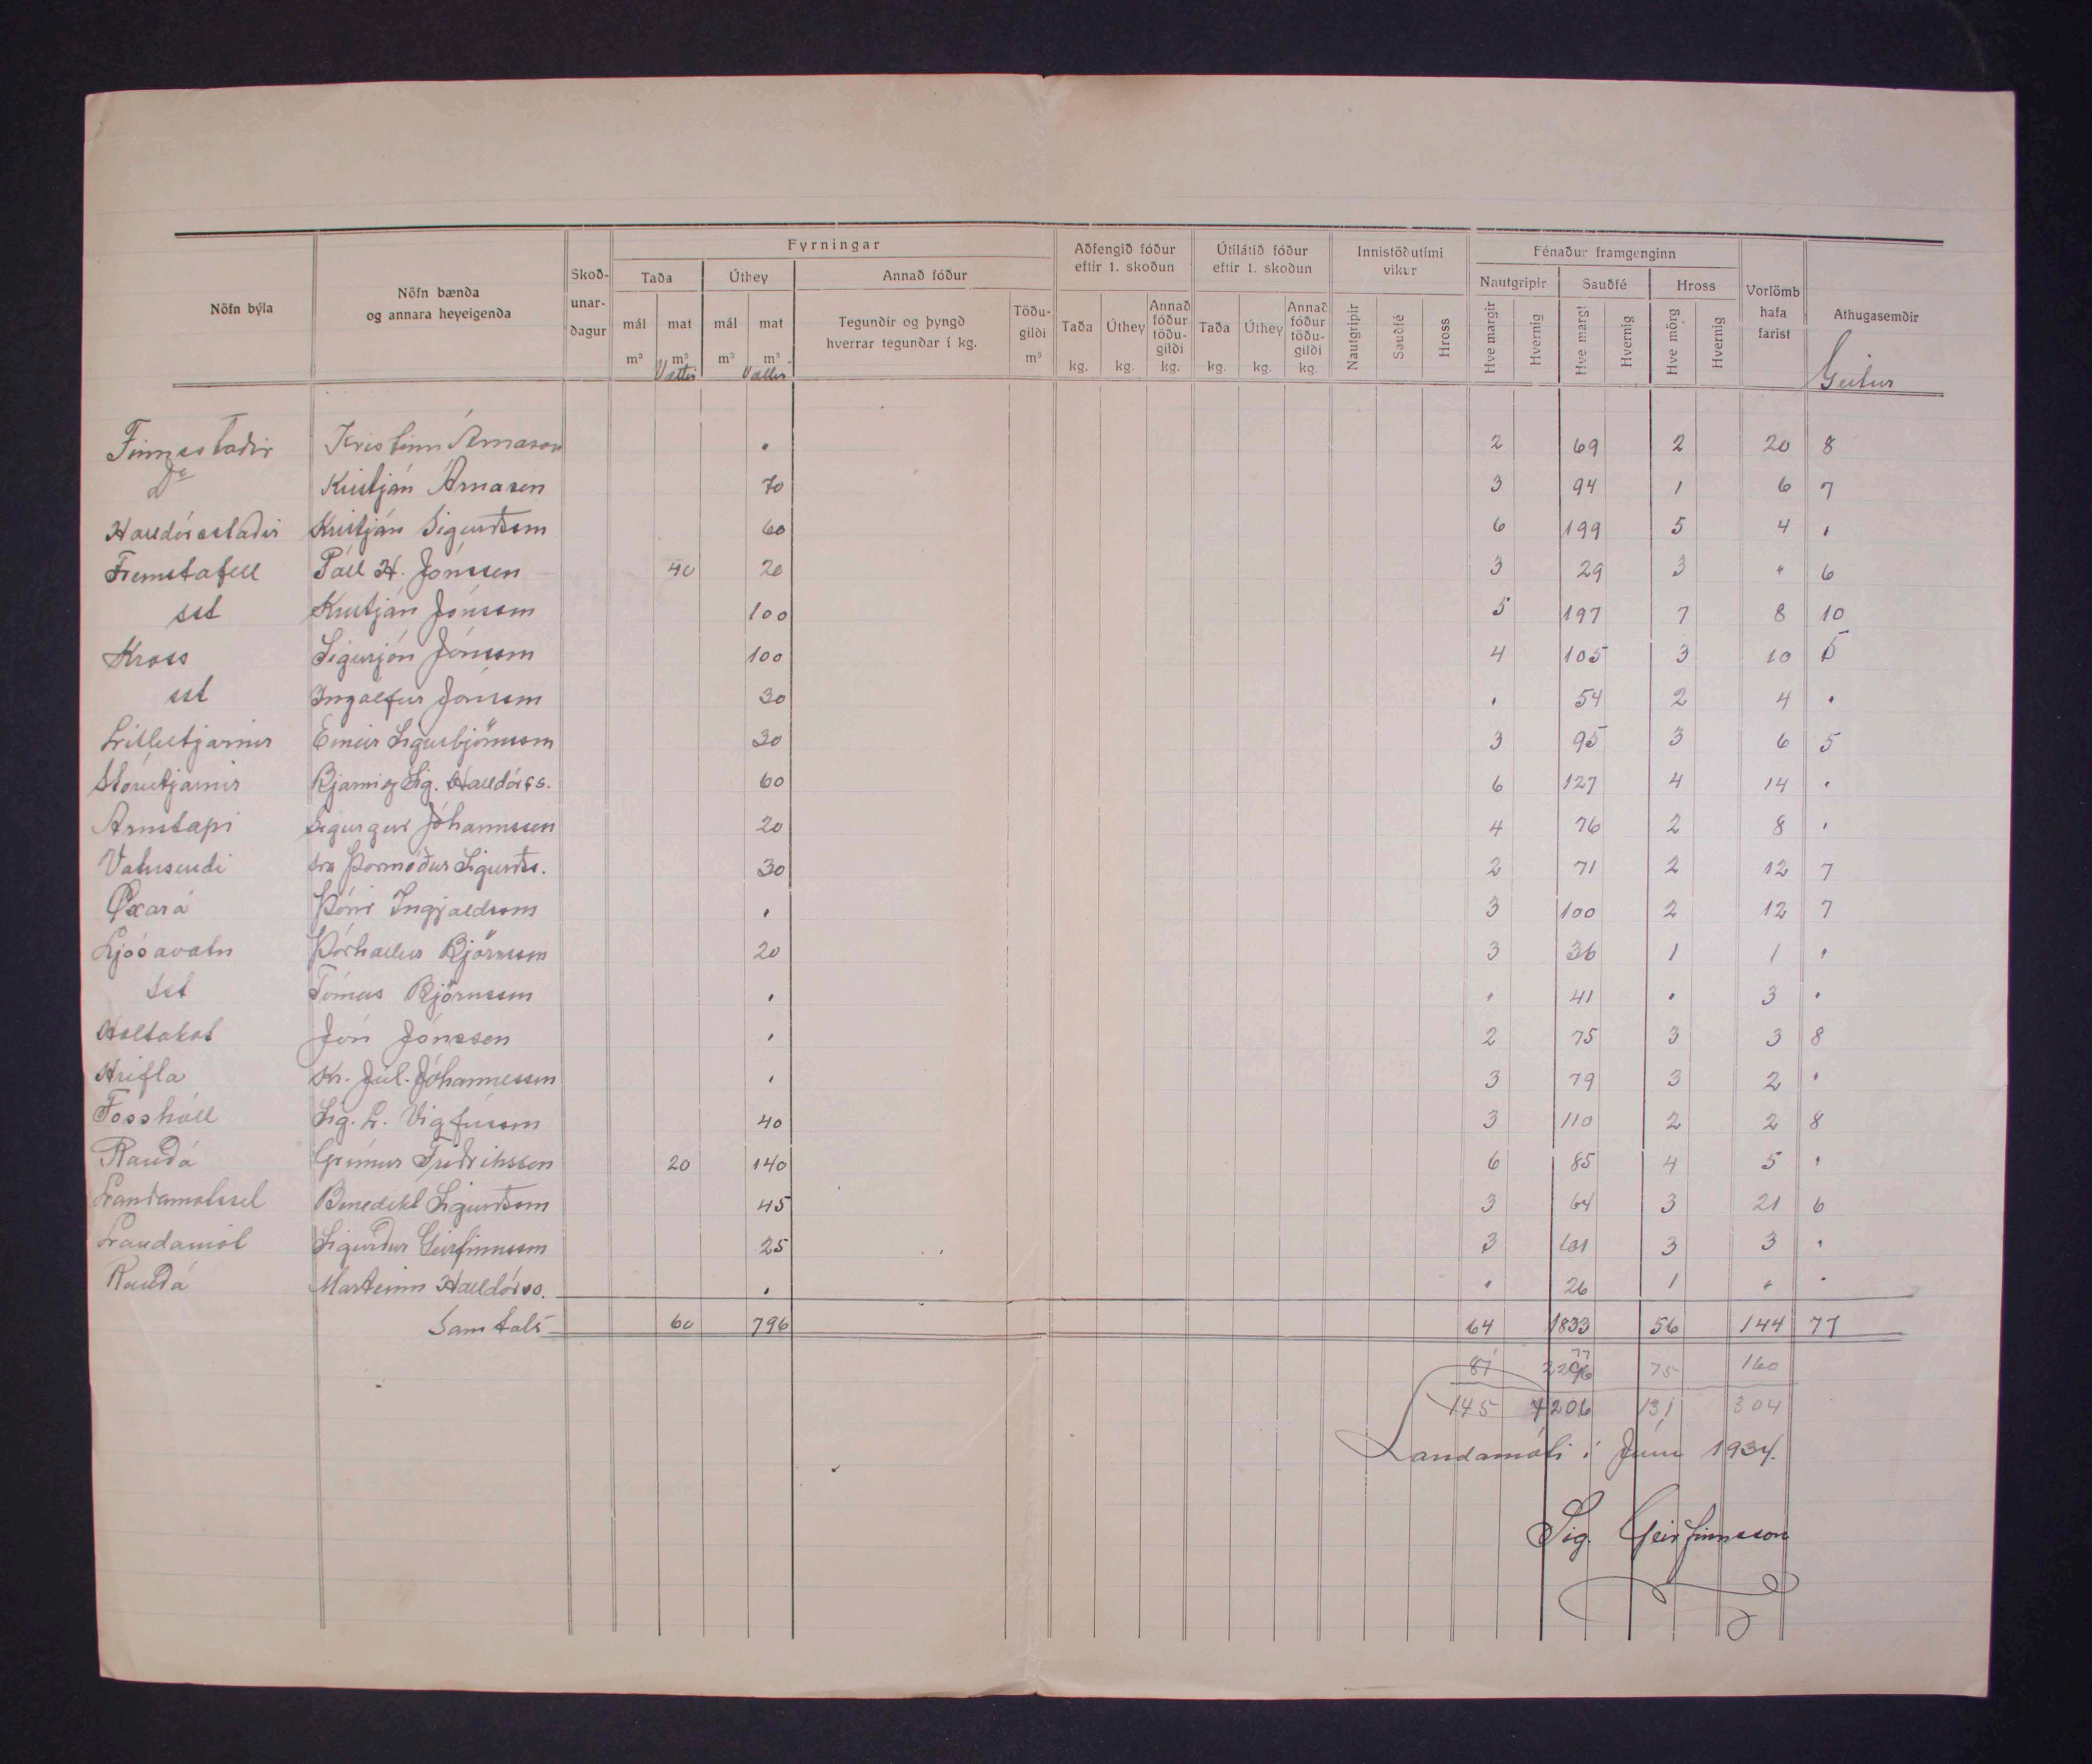 Fyrningar
Aðfengið fóður eftir 1. skoðun
Útilátið fóður eftir 1. skoðun
Innistöðutími vikur
Fénaður framgenginn
Nöfn býla
Nöfn bænda og annara heyeigenda
Skoð-unar-dagur
Taða
Úthey
Annað fóður
Nautgripir
Sauðfé
Hross
Vorlömb hafa farist
Athugasemdir
mál m³
mat m³
mál m³
mat m³
Tegundir og þyngd hverrar tegundar í kg.
Töðu-gildi m³
Taða kg.
Úthey kg.
Annað fóður töðu-gildi kg.
Taða kg.
Úthey kg.
Annað fóður töðu-gildi kg.
Nautgripir
Sauðfé
Hross
Hve margir
Hvernig
Hve margt
Hvernig
Hve mörg
Hvernig
Vættir Vættir Geitur
Finnsstaðir Kristinn Árnason " 2 69 2 20 8
Do Kristján Árnason 70 3 94 1 6 7
Halldórsstaðir Kristján Sigurðsson 60 6 199 5 4 "
Fremstafell Páll H. Jónsson 40 20 3 29 3 " 6
sst Kristján Jónsson 100 5 197 7 8 10
Kross Sigurjón Jónsson 100 4 105 3 10 5
sst Ingólfur Jónsson 30 " 54 2 4 "
Litlutjarnir Einar Sigurbjörnsson 30 3 95 3 6 5
Stórutjarnir Bjarni og Sig. Halldórss. 60 6 127 4 14 "
Arnstapi Sigurgeir Jóhannsson 20 4 76 2 8 "
Vatnsendi sra Þormóður Sigurðs. 30 2 71 2 12 7
Öxará Þórir Ingjaldsson " 3 100 2 12 7
Ljósavatn Þórhallur Björnsson 20 3 36 1 1 "
sst Tómas Björnsson " " 41 " 3 "
Holtakot Jón Jónsson " 2 75 3 3 8
Hrifla Kr. Júl. Jóhannesson " 3 79 3 2 "
Fosshóll Sig. L. Vigfússon 40 3 110 2 2 8
Rauðá Grímur Friðriksson 20 140 6 85 4 5 "
Landamótssel Benedikt Sigurðsson 45 3 64 3 21 6
Landamót Sigurður Geirfinnsson 25 3 101 3 3 "
Rauðá Marteinn Halldórss. " " 26 1 " "
Samtals 60 796 64 1833 56 144 77
81 75 160
145 4206 131 304
Landamóti í Júní 1934.
Sig. Geirfinnsson